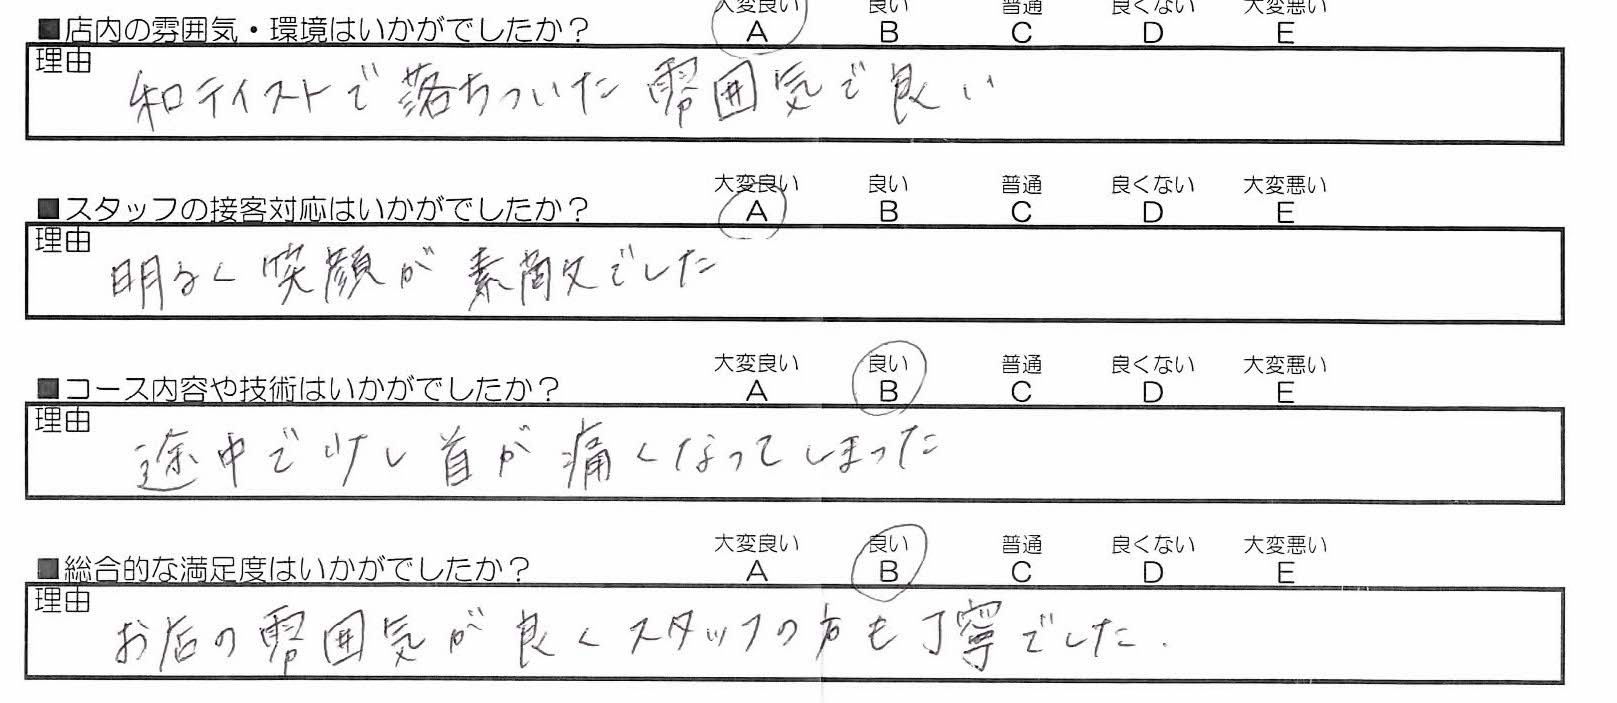 大変良い 良い 普通 良くない 大変悪い
■店内の雰囲気・環境はいかがでしたか? A B C D E
理由
和テイストで落ちついた雰囲気で良い
大変良い 良い 普通 良くない 大変悪い
■スタッフの接客対応はいかがでしたか? A B C D E
理由
明るく笑顔が素敵でした
大変良い 良い 普通 良くない 大変悪い
■コース内容や技術はいかがでしたか? A B C D E
理由
途中で少し首が痛くなってしまった
大変良い 良い 普通 良くない 大変悪い
■総合的な満足度はいかがでしたか? A B C D E
理由
お店の雰囲気が良くスタッフの方も丁寧でした.